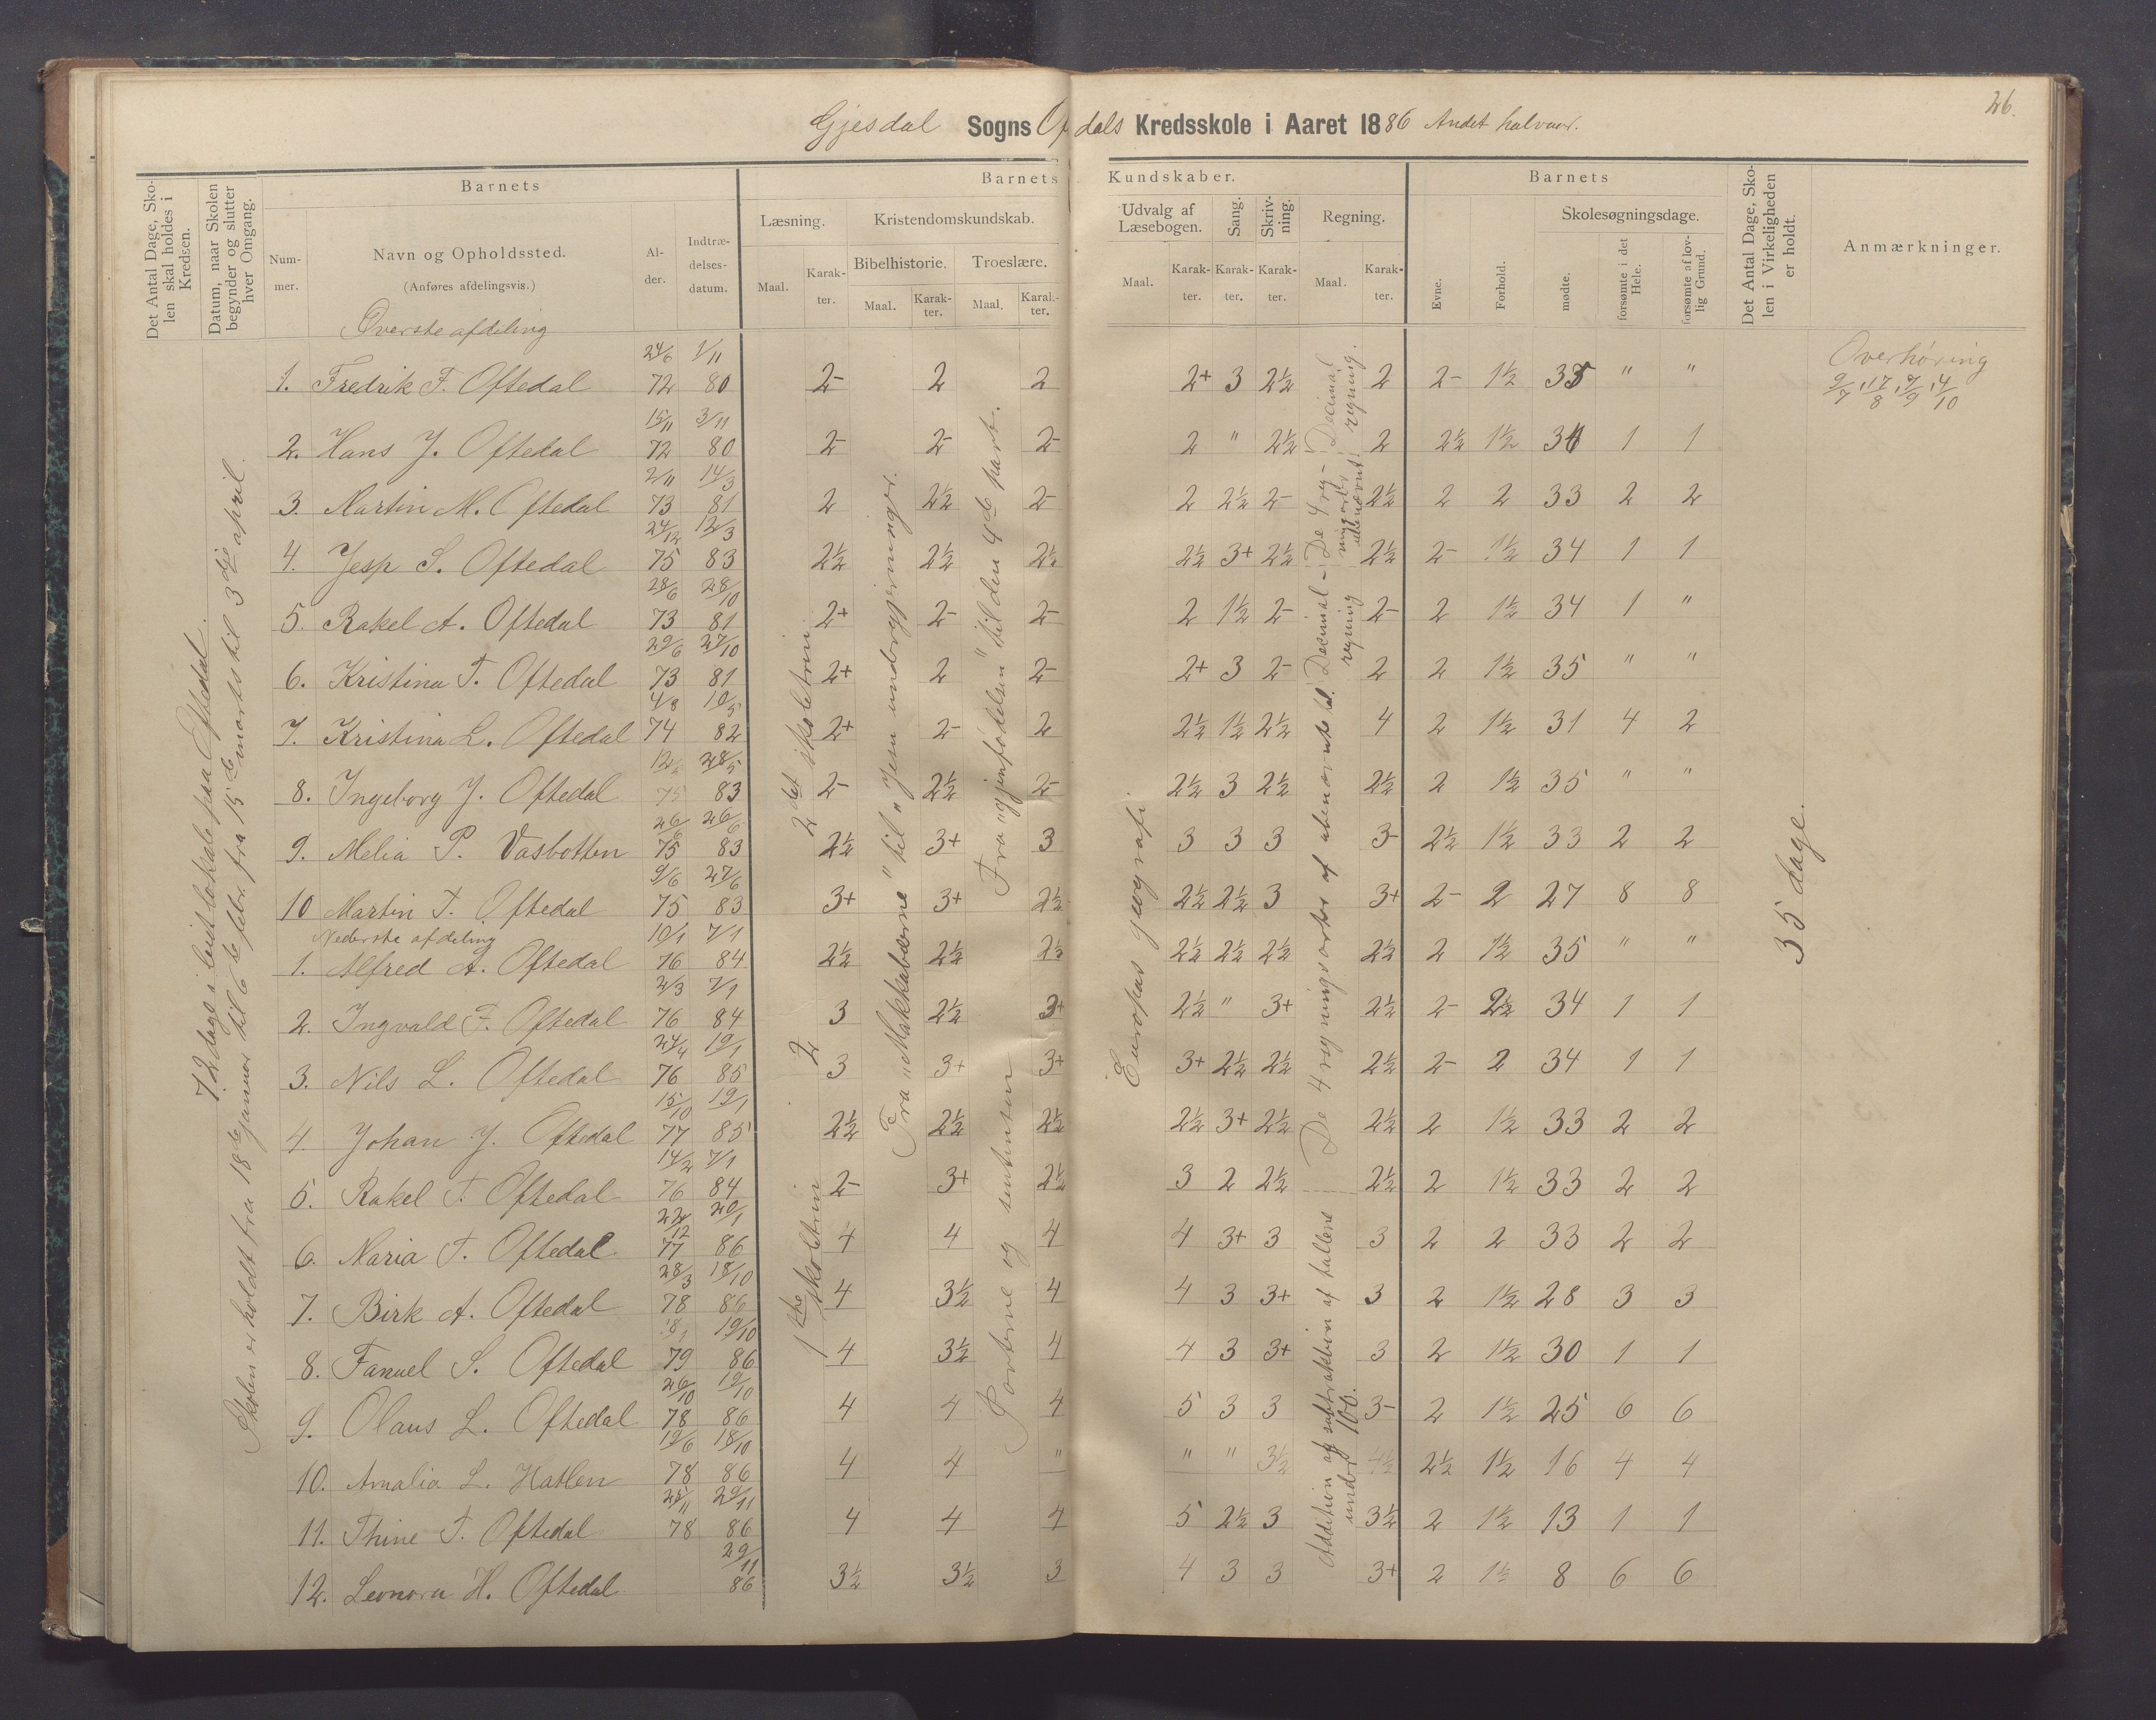 26.
Gjesdal Sogns Oftdals Kredsskole i Aaret 1886 Andet halvaar.
Det Antal Dage, Skolen skal holdes i Kredsen.
Datum, naar Skolen begynder og slutter hver Omgang.
Barnets
Nummer.
Navn og Opholdssted.
(Anføres afdelingsvis.)
Alder.
Indtrædelsesdatum.
Barnets Kundskaber.
Læsning.
Kristendomskundskab.
Bibelhistorie.
Troeslære.
Maal. Karakter. Maal. Karakter. Maal. Karakter.
Udvalg af Læsebogen.
Sang.
Skrivning.
Regning.
Maal. Karakter. Karakter. Karakter. Maal. Karakter.
Barnets
Evne.
Forhold.
Skolesøgningsdage.
mødte.
forsømte i det Hele.
forsømte af lovlig Grund.
Det Antal Dage, Skolen i Virkeligheden er holdt.
Anmærkninger.
Øverste afdeling
1. Fredrik F. Oftedal 24/6 72 1/11 80 2- 2 2 2+ 3 2½ 2 2- 1½ 35 " "
2. Hans J. Oftedal 15/11 72 3/11 80 2- 2- 2- 2 " 2½ 2 2½ 1½ 34 1 1
3. Martin M. Oftedal 2/11 73 14/3 81 2 2½ 2- 2 2½ 2- 2½ 2 2 33 2 2
4. Jesp S. Oftedal 24/12 75 12/3 83 2½ 2½ 2½ 2½ 3+ 2½ 2½ 2- 1½ 34 1 1
5. Rakel A. Oftedal 28/6 73 28/10 81 2+ 2- 2- 2 1½ 2- 2- 2 1½ 34 1 "
6. Kristina T. Oftedal 29/6 73 27/10 81 2+ 2 2- 2+ 3 2- 2 2 1½ 35 " "
7. Kristina L. Oftedal 4/8 74 10/5 82 2+ 2- 2 2½ 1½ 2½ 4 2 1½ 31 4 2
8. Ingeborg J. Oftedal 75 28/5 83 2- 2½ 2- 2½ 3 2½ 2½ 2 1½ 35 " "
9. Melia P. Vasbotten 26/6 75 26/6 83 2½ 3+ 3 3 3 3 3- 2½ 1½ 33 2 2
10 Martin T. Oftedal 9/6 75 27/6 83 3+ 3+ 2½ 2½ 2½ 3 3+ 2- 2 27 8 8
Nederste afdeling
1. Alfred A. Oftedal 10/1 76 7/1 84 2½ 2½ 2½ 2½ 2½ 2½ 2½ 2 1½ 35 " "
2. Ingvald F. Oftedal 2/3 76 7/1 84 3 2½ 3+ 2½ " 3+ 2½ 2- 2½ 34 1 1
3. Nils L. Oftedal 24/4 76 19/1 85 3 3+ 3+ 3+ 2½ 2½ 2½ 2- 2 34 1 1
4. Johan J. Oftedal 15/10 77 19/1 85 2½ 2½ 2½ 2½ 3+ 2½ 2½ 2 1½ 33 2 2
5. Rakel T. Oftedal 14/2 76 7/1 84 2- 3+ 2½ 3 2 2½ 2½ 2 1½ 33 2 2
6. Maria T. Oftedal 22/12 77 20/1 86 4 4 4 4 3+ 3 3 2 2 33 2 2
7. Birk A. Oftedal 28/3 78 18/10 86 4 3½ 4 4 3 3+ 3 2 1½ 28 3 3
8. Fanuel S. Oftedal 79 19/10 86 4 3½ 4 4 3 3+ 3 2 1½ 30 1 1
9. Olaus L. Oftedal 26/10 78 19/10 86 4 4 4 5 3 3 3- 2 1½ 25 6 6
10. Amalia L. Hatlen 19/6 78 18/10 86 4 4 " " " 3½ 4½ 2½ 1½ 16 4 4
11. Thine T. Oftedal 78 29/11 86 4 4 4 5 2½ 3 3½ 2 1½ 13 1 1
12. Leonora H. Oftedal 29/11 86 3½ 3½ 3 4 3 3 3+ 2 1½ 8 6 6
72 dage i leiet lokale paa Oftedal.
Skolen er holdt fra 18de januar til 6te febr. fra 15de marts til 3dje april.
2det skoletrin.
2
1ste skoletrin
Fra "Makkabæerne" til "Jesu undergjerninger.
Fra "gjenfødelsen" til den 4de part.
Parterne og sententser
Europas geografi
De 4 regningsarter af ubenævnte tal. Decimalregning
De 4 regningsarter ubenævnt. Decimalregning.
Addition og subtraktion af tallene under 100.
35 dage.
Overhøring
9/7, 17/8, 7/9, 4/10